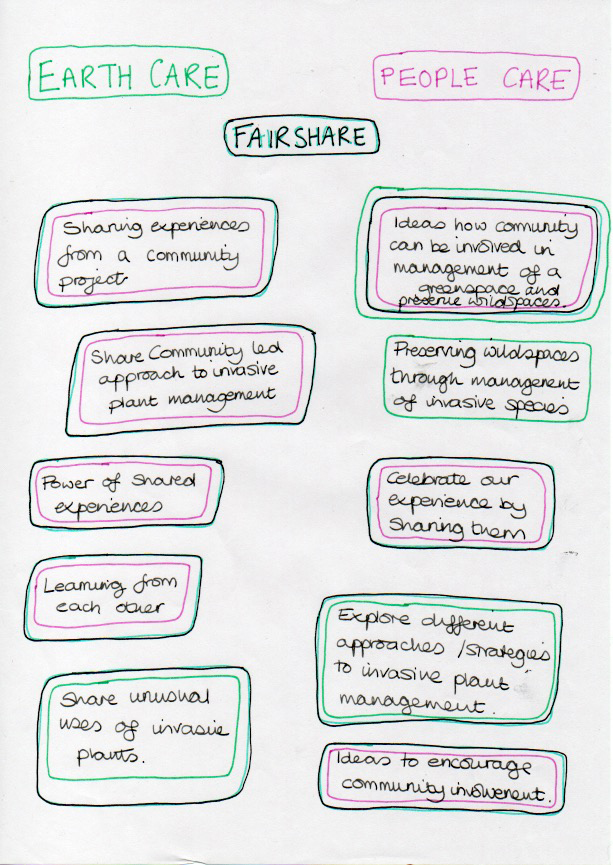 EARTH CARE
PEOPLE CARE
FAIRSHARE
Sharing experiences
from a community
project
Ideas how comunity
can be involved in
management of a
greenspace and
preserve wildspaces.
Share Community led
approach to invasive
plant management
Preserving wildspaces
through management
of invasive species
Power of shared
experiences
Celebrate our
experience by
Sharing them
Learning from
each other
Explore different
approaches /strategies
to invasive plant
management.
Share unusual
uses of invasive
plants.
Ideas to encourage
community involvement.